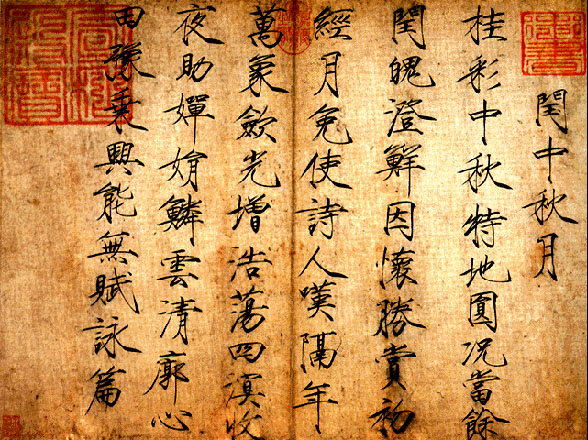 閏中秋月
桂彩中秋特地圓况當餘
閏魄澄鮮因懷勝賞初
經月免使詩人嘆隔年
萬象歛光增浩蕩四溟收
夜助嬋娟鱗雲清廓心
田豫乘興能無賦詠篇